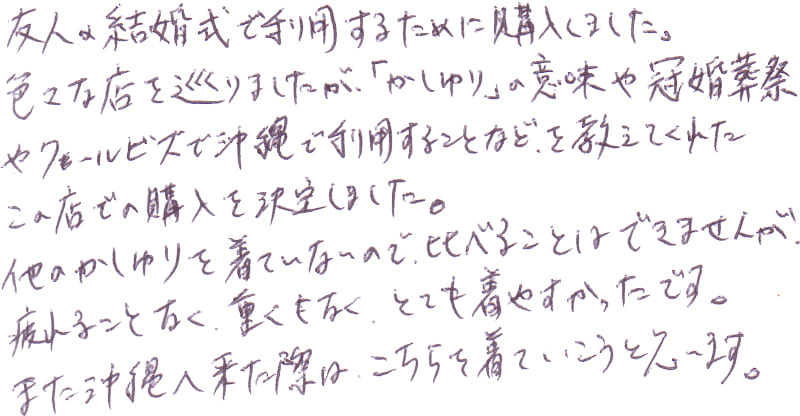 友人の結婚式で利用するために購入しました。
色々な店を巡りましたが、「かしゆり」の意味や冠婚葬祭
やクールビズで沖縄で利用することなど、を教えてくれた
この店での購入を決定しました。
他のかしゆりを着ていないので、比べることはできませんが、
疲れることなく、重くもなく、とても着やすかったです。
また沖縄へ来た際は、こちらを着ていこうと思います。